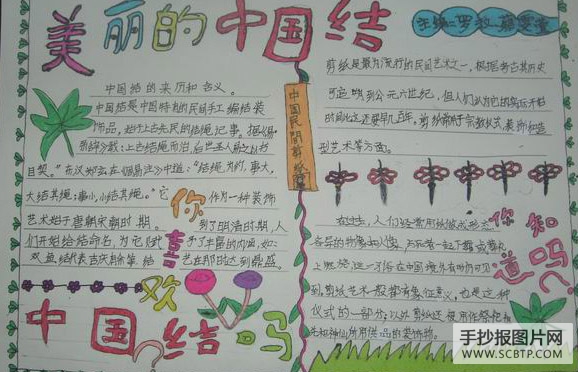 美丽的中国结
主编:罗
中国结的来历和含义。
中国结是中国特有的民间手工编结装
饰品,始于上古先民的结绳记事,据《易·
系辞》载:上古结绳而治,后世圣人易之以书
目契。"在汉郑玄在《周易注》中道:"结绳为约,事大,
大结其绳;事小,小结其绳。"它作为一种装饰
艺术始于唐朝宋朝时期。到了明清时期,人
们开始给结命名,为它赋予了丰富的内涵,如:
双鱼结代表吉庆有余等,结艺在那时达到鼎盛。
你喜欢
中国结吗?
中国民间剪纸
剪纸是最为流行的民间艺术之一,根据考古其历史
可追朔到公元六世纪,但人们认为它的实际开始
时间比这还要早几百年,剪纸常用于宗教仪式,装饰和造
型艺术等方面。
你知道吗?
在过去,人们经常用纸做成形态
各异的物像和人像,与死者一起下葬或葬礼
上燃烧,这一习俗在中国境外有时仍可见
到,剪纸艺术一般都有象征意义,也是这种
仪式的一部分;以外剪纸还被用作祭祀祖
先和神仙所用供品的装饰物。
手抄报图片网
WWW.SCBTP.COM